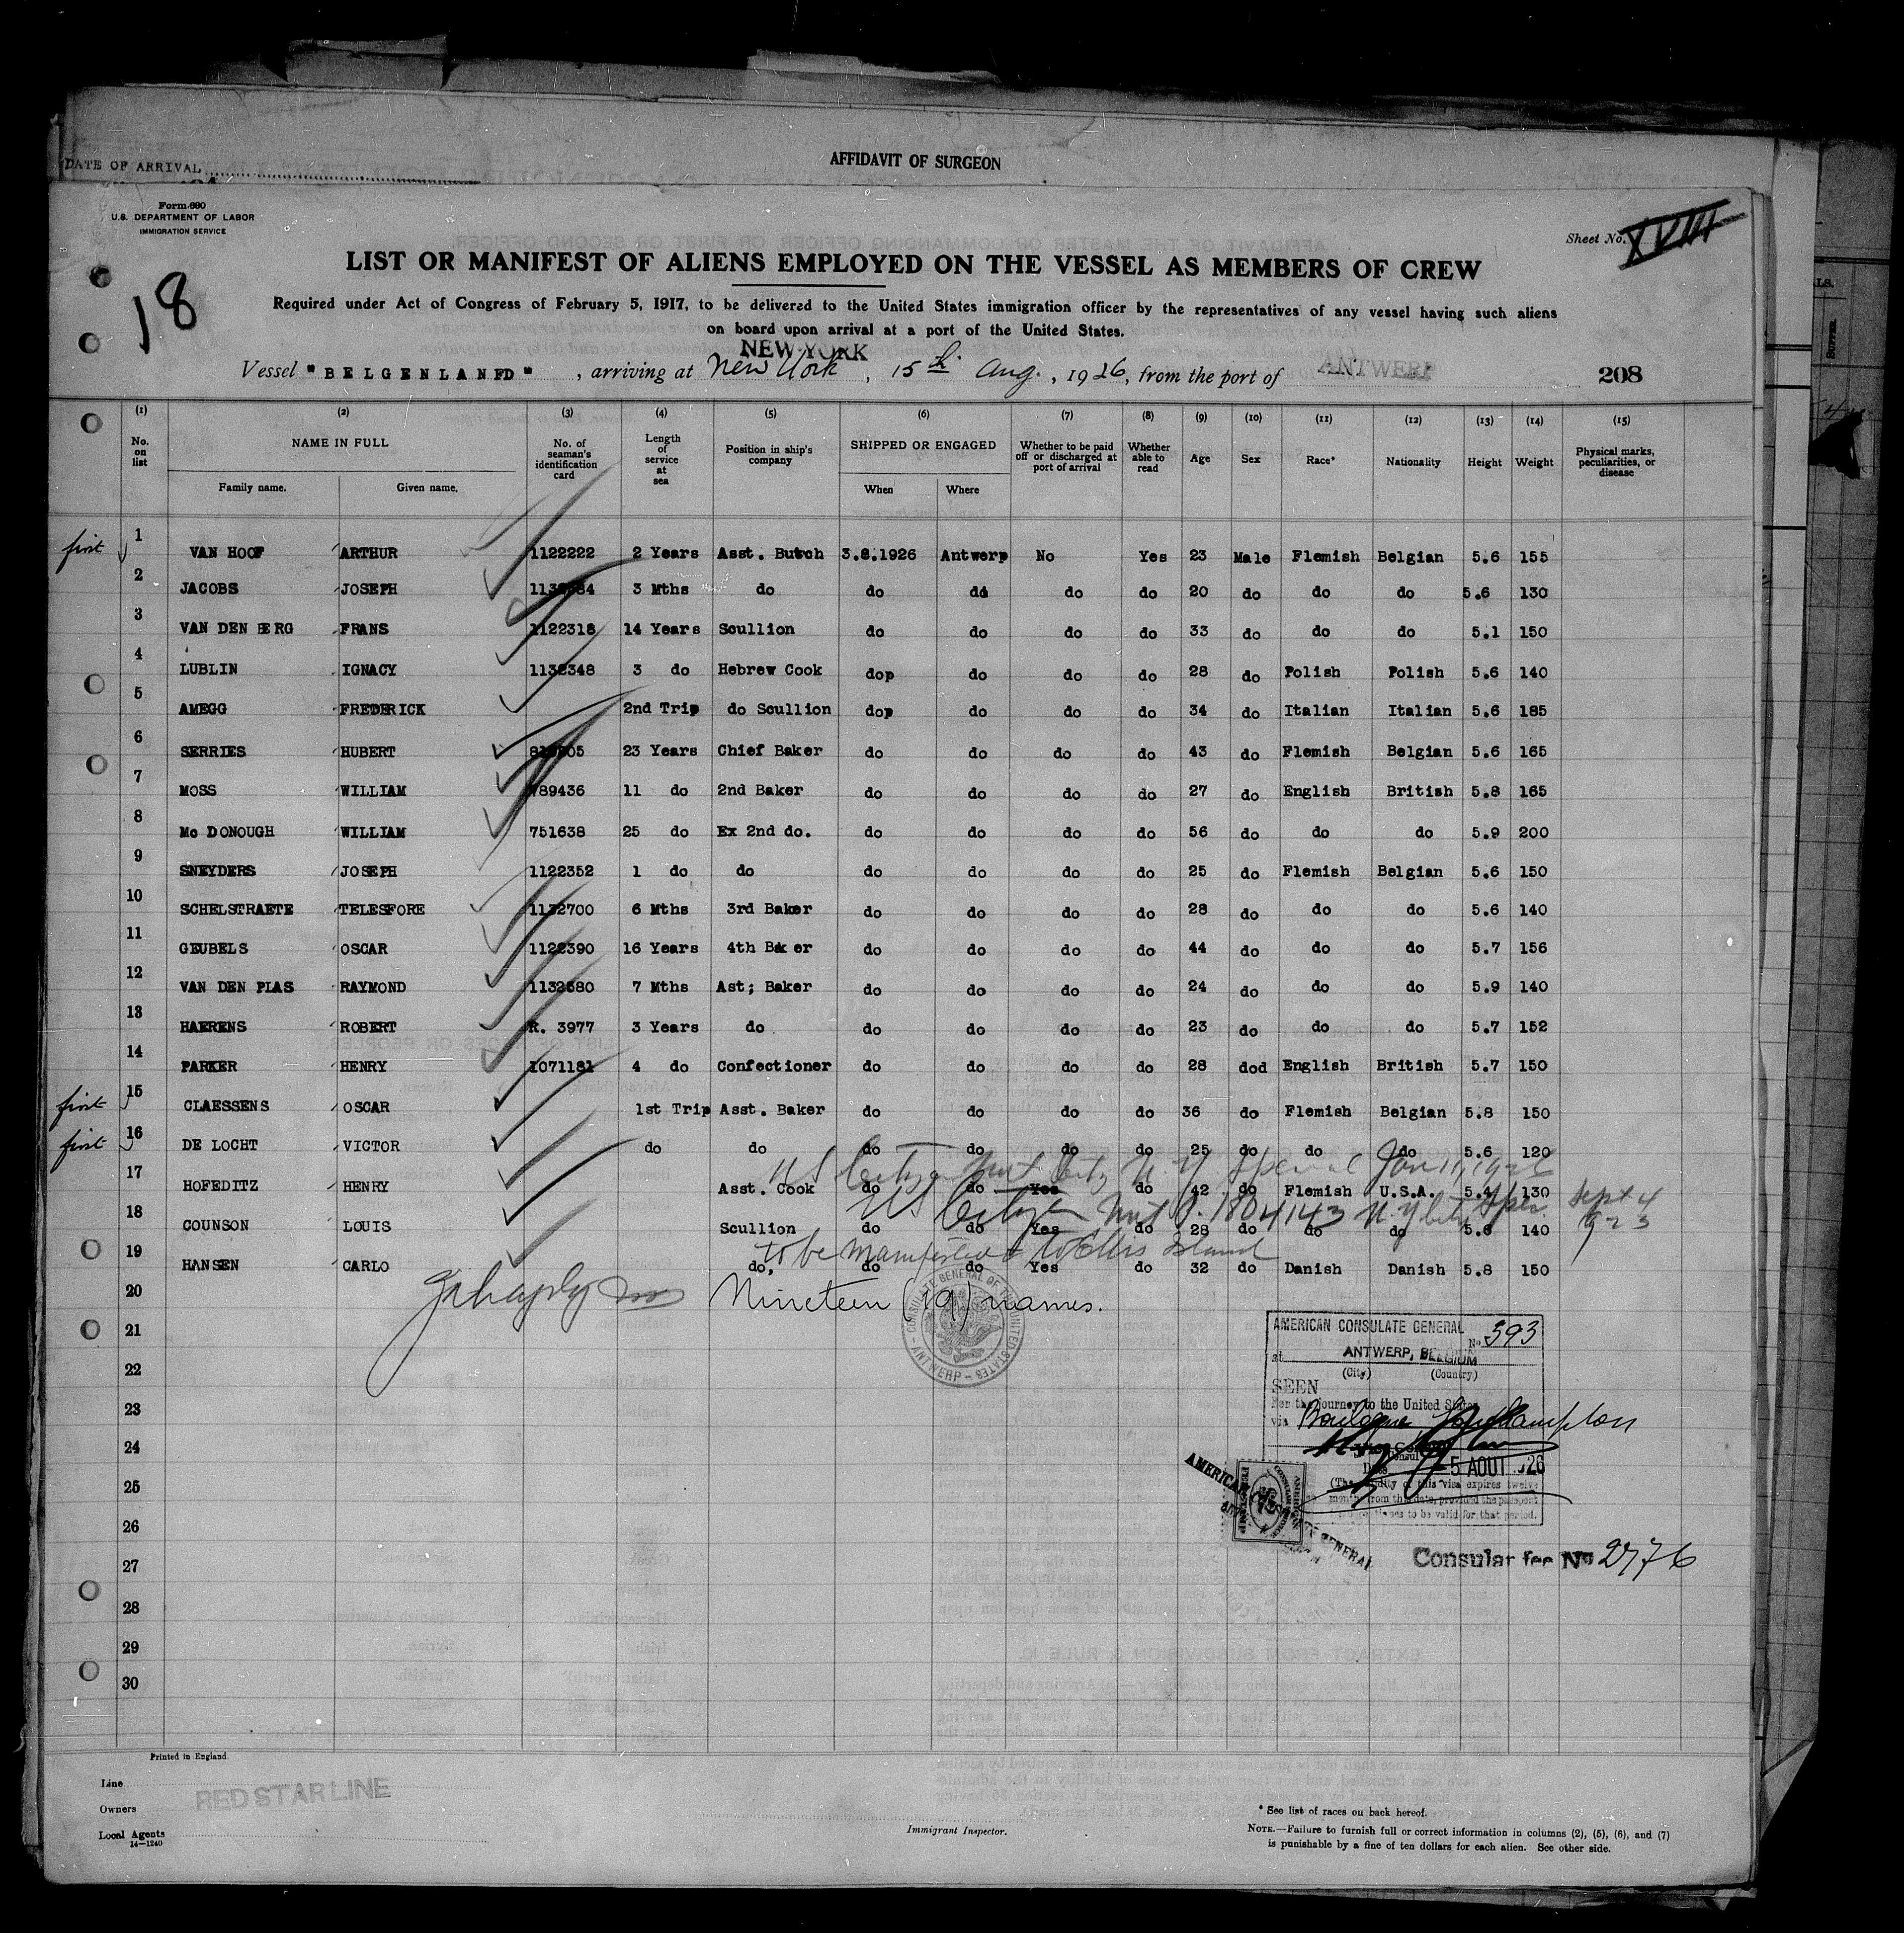 DATE OF ARRIVAL
AFFIDAVIT OF SURGEON
Form 680
U.S. DEPARTMENT OF LABOR
IMMIGRATION SERVICE
Sheet No. XVIII
18
LIST OR MANIFEST OF ALIENS EMPLOYED ON THE VESSEL AS MEMBERS OF CREW
Required under Act of Congress of February 5, 1917, to be delivered to the United States immigration officer by the representatives of any vessel having such aliens
on board upon arrival at a port of the United States.
NEW YORK
Vessel "BELGENLAND", arriving at New York, 15th Aug., 1926, from the port of ANTWERP 208
(1) (2) (3) (4) (5) (6) (7) (8) (9) (10) (11) (12) (13) (14) (15)
No. on list NAME IN FULL No. of seaman's identification card Length of service at sea Position in ship's company SHIPPED OR ENGAGED Whether to be paid off or discharged at port of arrival Whether able to read Age Sex Race* Nationality Height Weight Physical marks, peculiarities, or disease
Family name. Given name. When Where
first 1 VAN HOOF ARTHUR 1122222 2 Years Asst. Butch 3.8.1926 Antwerp No Yes 23 Male Flemish Belgian 5.6 155
2 JACOBS JOSEPH 3 Mths do do do do do 20 do do do 5.6 130
3 VAN DEN BERG FRANS 1122318 14 Years Scullion do do do do 33 do do do 5.1 150
4 LUBLIN IGNACY 1132348 3 do Hebrew Cook dop do do do 28 do Polish Polish 5.6 140
5 AMEGG FREDERICK 2nd Trip do Scullion dop do do do 34 do Italian Italian 5.6 185
6 SERRIES HUBERT 23 Years Chief Baker do do do do 43 do Flemish Belgian 5.6 165
7 MOSS WILLIAM 789436 11 do 2nd Baker do do do do 27 do English British 5.8 165
8 Mc DONOUGH WILLIAM 751638 25 do Ex 2nd do. do do do do 56 do do do 5.9 200
9 SNEYDERS JOSEPH 1122352 1 do do do do do do 25 do Flemish Belgian 5.6 150
10 SCHELSTRAETE TELESFORE 1132700 6 Mths 3rd Baker do do do do 28 do do do 5.6 140
11 GEUBELS OSCAR 1122390 16 Years 4th Baker do do do do 44 do do do 5.7 156
12 VAN DEN PLAS RAYMOND 1132680 7 Mths Ast; Baker do do do do 24 do do do 5.9 140
13 HAERENS ROBERT R. 3977 3 Years do do do do do 23 do do do 5.7 152
14 PARKER HENRY 1071181 4 do Confectioner do do do do 28 dod English British 5.7 150
first 15 CLAESSENS OSCAR 1st Trip Asst. Baker do do do do 36 do Flemish Belgian 5.8 150
first 16 DE LOCHT VICTOR do do do do do do 25 do do do 5.6 120
US Citizen N.Y. Special Jan 11, 1926
17 HOFEDITZ HENRY Asst. Cook do do Yes do 42 do Flemish U.S.A. 5.4 130
US Citizen 1804143 N.Y. City Sept 4 923
18 COUNSON LOUIS Scullion do do Yes do 28 do do do 5.6 140
to be manifested to Ellis Island
19 HANSEN CARLO do, do do Yes do 32 do Danish Danish 5.8 150
20 Nineteen (19) names.
CONSULATE GENERAL OF THE UNITED STATES - ANTWERP -
21
22
23
24
25
26
27
28
29
30
AMERICAN CONSULATE GENERAL No 393
at ANTWERP, BELGIUM
(City) (Country)
SEEN
For the journey to the United States
via Boulogne Southampton
Consul
Date 5 AOUT 1926
(The validity of this visa expires twelve
months from this date, provided the passport
continues to be valid for that period.
AMERICAN CONSULATE GENERAL
Consular fee No 2776
Printed in England
Line
RED STAR LINE
Owners
Local Agents
14-1240
Immigrant Inspector.
* See list of races on back hereof.
NOTE.—Failure to furnish full or correct information in columns (2), (5), (6), and (7)
is punishable by a fine of ten dollars for each alien. See other side.